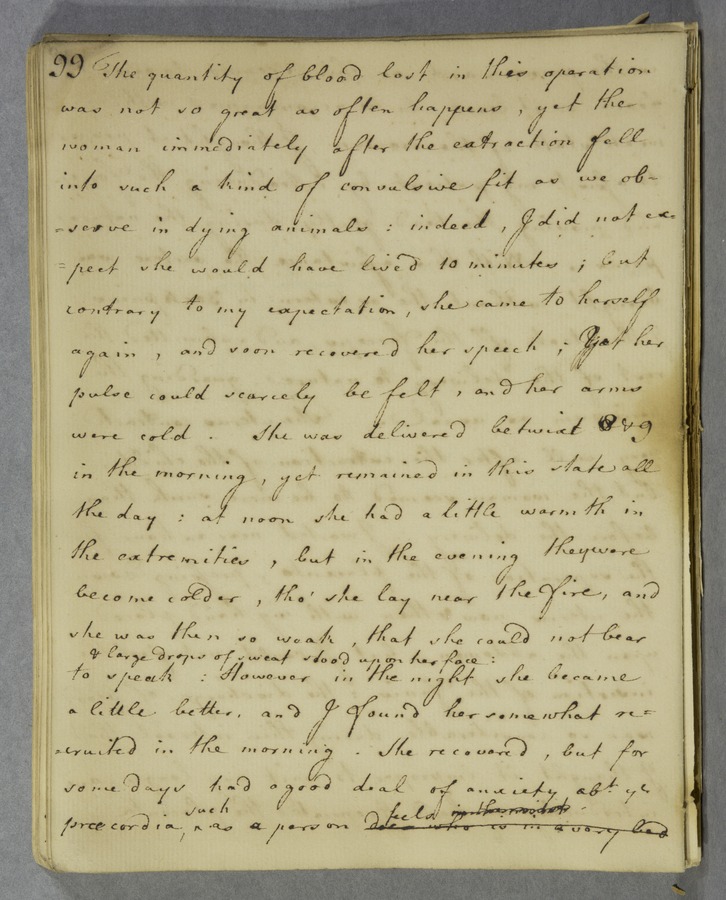 99 The quantity of blood lost in this operation
was not so great as often happens, yet the
woman immediately after the extraction fell
into such a kind of convulsive fit as we ob=
=serve in dying animals : indeed, I did not ex=
=pect she would have lived 10 minutes ; but
contrary to my expectation, she came to herself
again, and soon recovered her speech ; Yet her
pulse could scarcely be felt, and her arms
were cold. She was delivered betwixt 8 & 9
in the morning, yet remained in this state all
the day : at noon she had a little warmth in
the extremities, but in the evening they were
become colder, tho' she lay near the fire, and
she was then so weak, that she could not bear
& large drops of sweat stood upon her face :
to speak : However in the night she became
a little better, and I found her somewhat re=
=cruited in the morning. She recovered, but for
some days had a good deal of anxiety abt. ye
such feels in the
præcordia, as a person does who is in a very bad